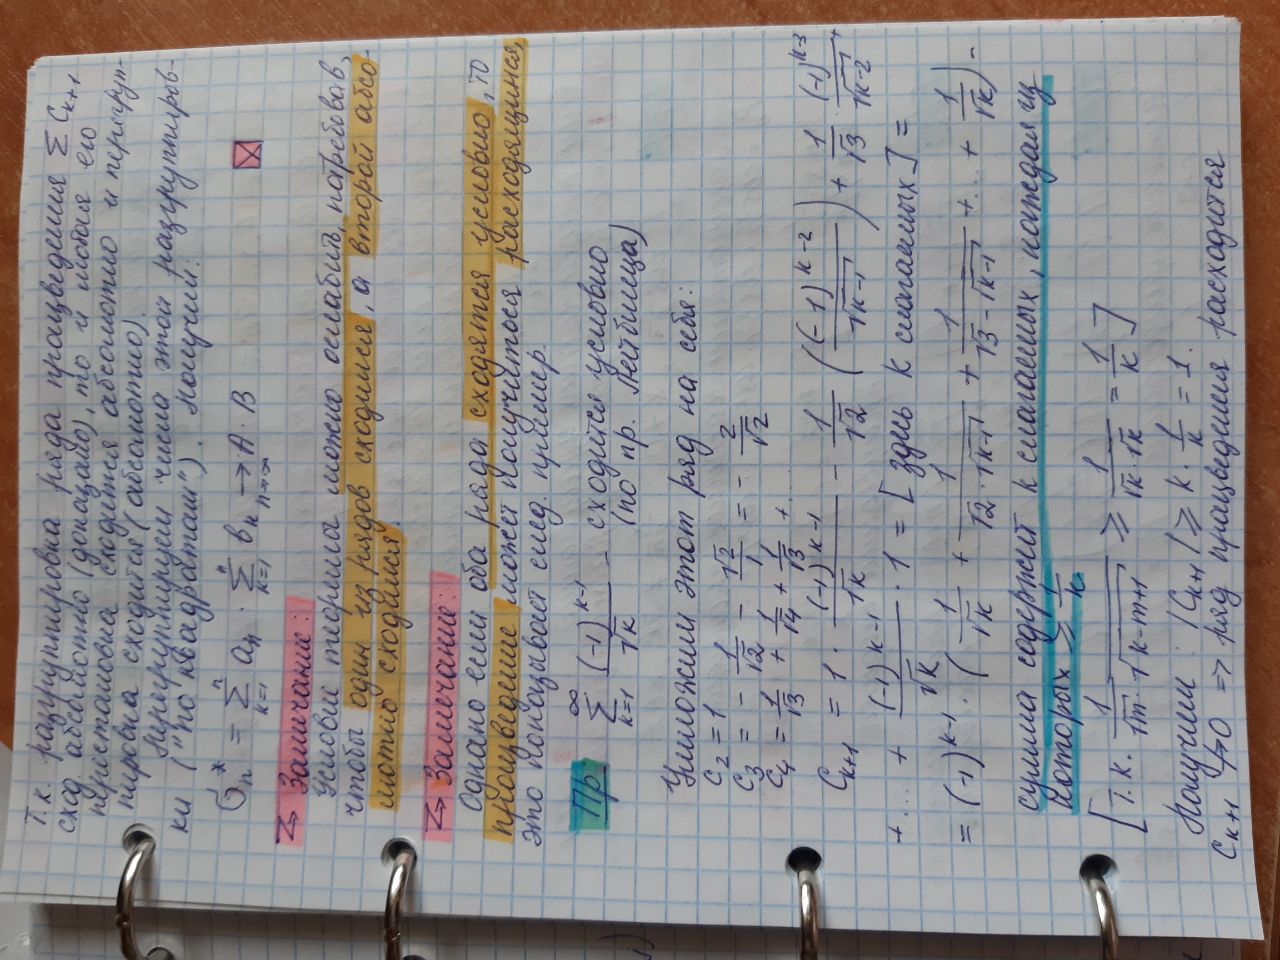 Т.к. разгруппировка ряда працведения Σ C_{k+1}
сход. абсолютно (доказано), то и любая его
перестановка сходится абсолютно и перегруп-
пировка сходится (абсолютно).
Перегруппируем числа этой разгруппиров-
ки ("по квадратам"). Получим:
σ_n^* = Σ_{k=1}^{n} a_n · Σ_{k=1}^{n} b_n →_{n→∞} A · B
Замечание:
Условие теоремы можно ослабить, потребовав,
чтобы один из рядов сходился, а второй абсо-
лютно сходился.
Замечание:
Однако если оба ряда сходятся условно, то
произведение может получиться расходящимся,
это показывает след. пример.
Пр Σ_{k=1}^{∞} (-1)^{k-1}/√k - сходится условно
(по пр. Лейбница)
Умножим этот ряд на себя:
C_2 = 1
C_3 = - 1/√2 - √2/1 = - 2/√2
C_4 = 1/√3 + 1/√4 + 1/√3 + ...
C_{k+1} = 1 · (-1)^{k-1}/√k - 1/√2 ((-1)^{k-2}/√(k-1)) + 1/√3 · (-1)^{k-3}/√(k-2) +
+ ... + (-1)^{k-1}/√k · 1 = [здесь k слагаемых] =
= (-1)^{k-1} · (1/√k + 1/(√2 · √(k-1)) + 1/(√3 - √(k-1)) + ... + 1/√k) -
сумма содержит k слагаемых, каждая из
которых ≥ 1/k
[т.к. 1/(√m · √(k-m+1)) ≥ 1/(√k · √k) = 1/k]
Получим: |C_{k+1}| ≥ k · 1/k = 1.
C_{k+1} ↛ 0 => ряд працведения расходится